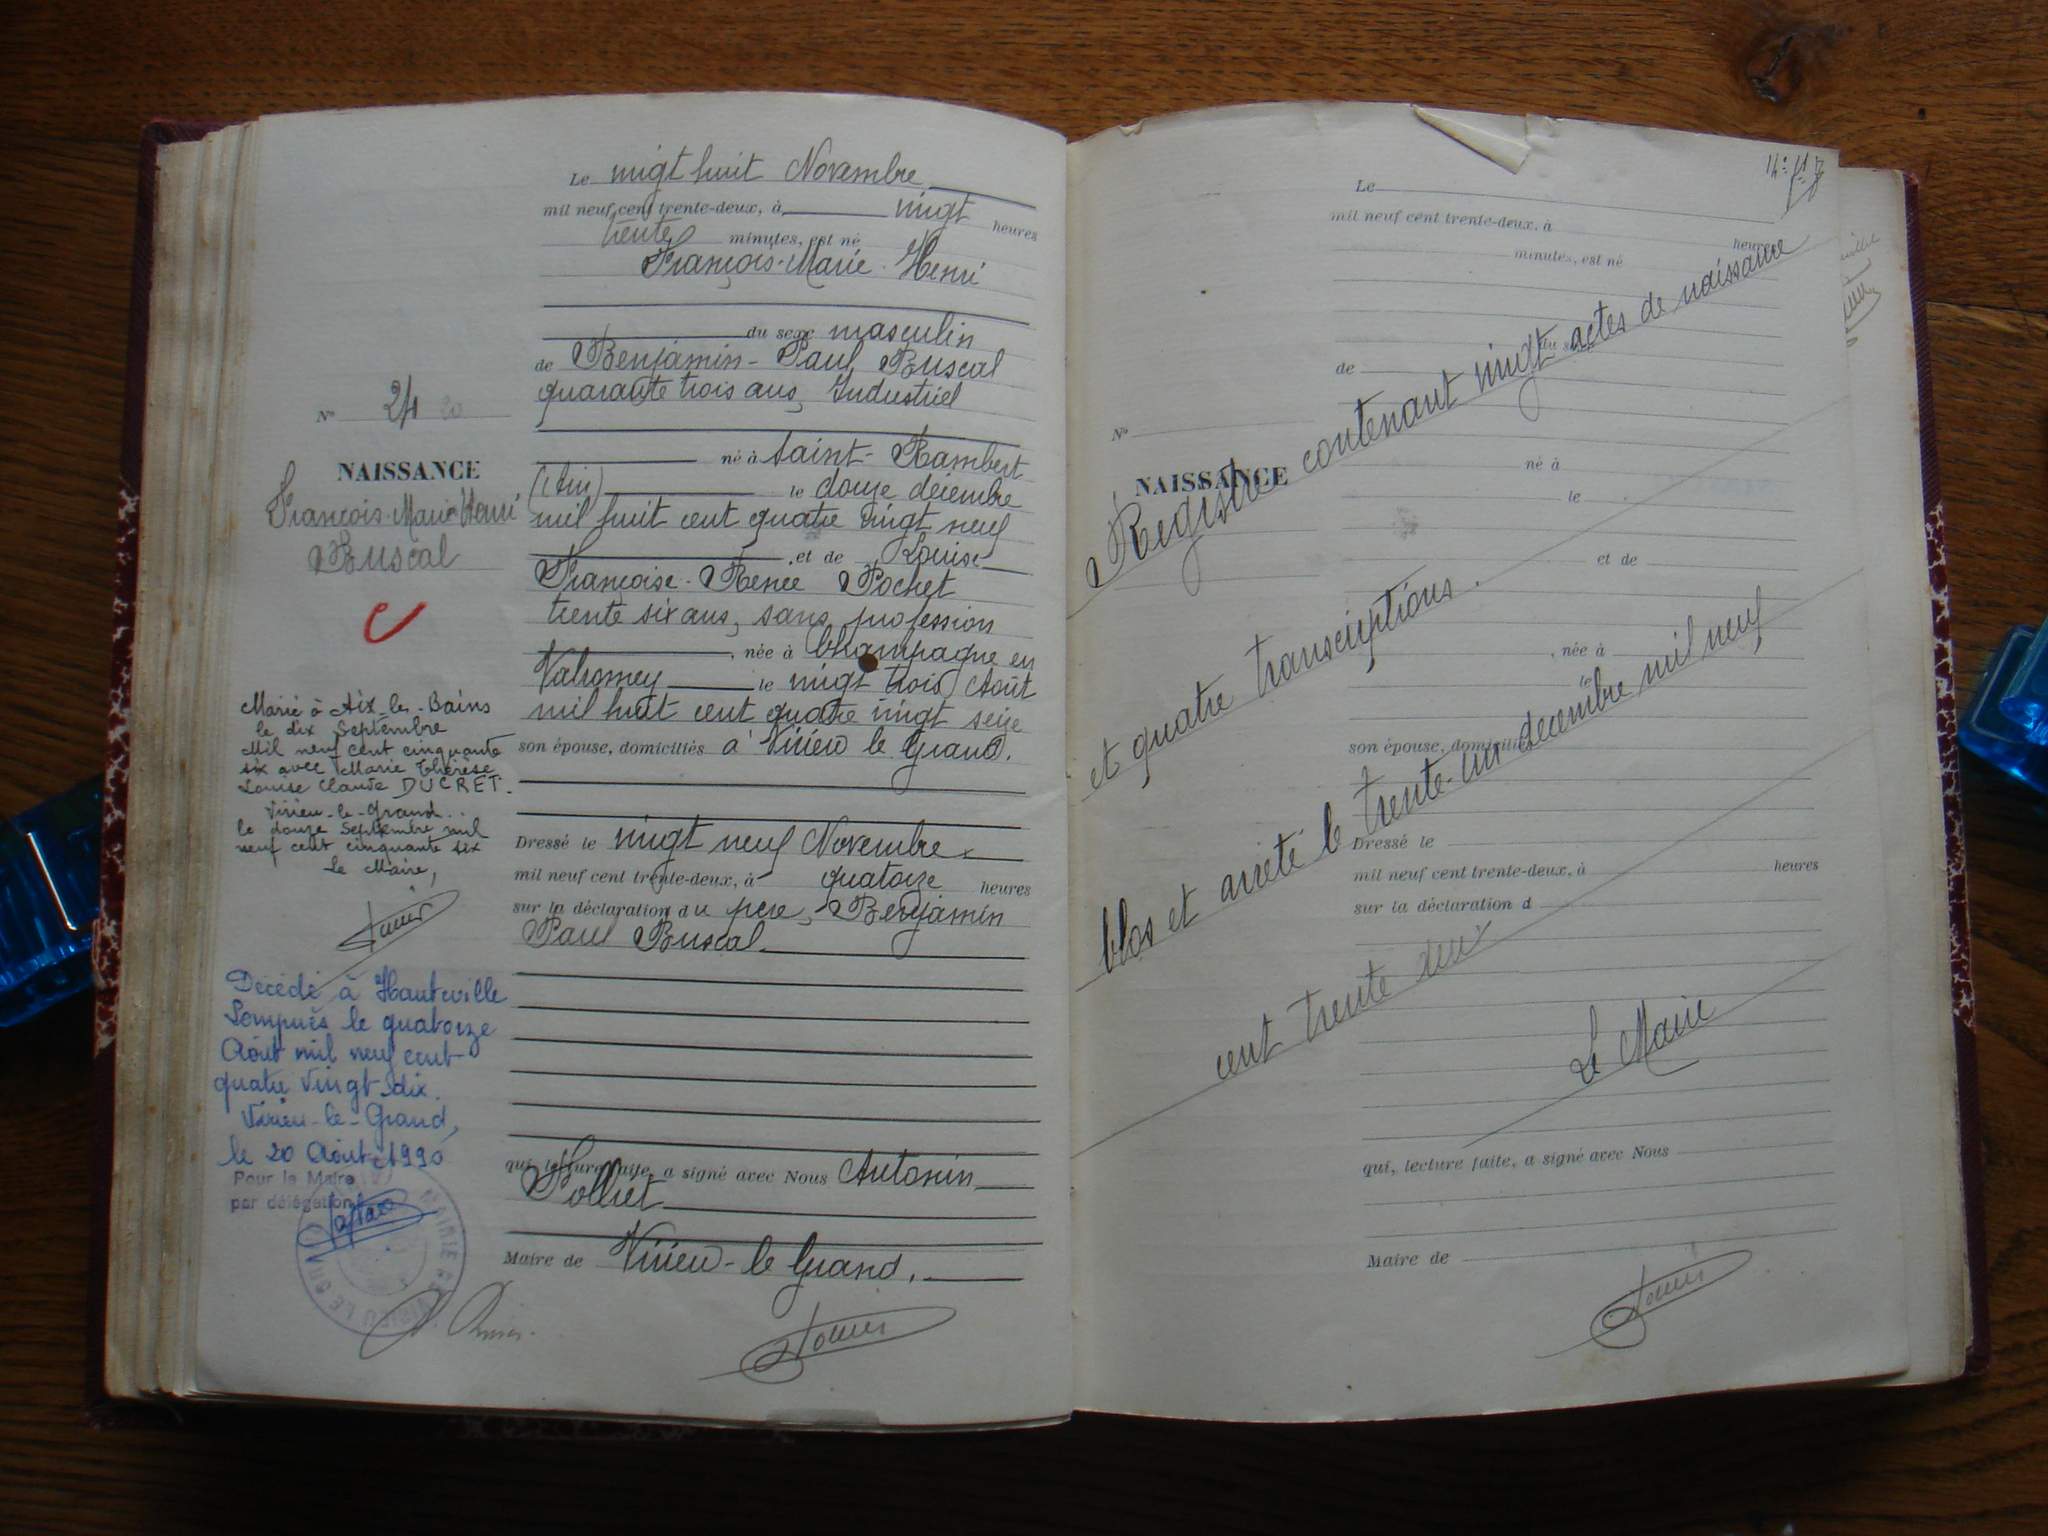 Le vingt huit Novembre
mil neuf cent trente-deux, à vingt heures
trente minutes, est né
François-Marie-Henri
du sexe masculin
de Benjamin-Paul Buscal
quarante trois ans, Industriel
né à Saint-Rambert
(Ain) le douze décembre
mil huit cent quatre vingt neuf
et de Louise
Françoise-Renée Pochet
trente six ans, sans profession
, née à Champagne en
Valromey le vingt trois Août
mil huit cent quatre vingt seize
son épouse, domiciliés à Virieu le Grand.
Dressé le vingt neuf Novembre
mil neuf cent trente-deux, à quatorze heures
sur la déclaration du père, Benjamin
Paul Buscal
qui, lecture faite, a signé avec Nous Antonin
Maire de Virieu-le Grand.
N° 24 20
NAISSANCE
François-Marie Henri
Buscal
Marié à Aix-les-Bains
le dix Septembre
Mil neuf cent cinquante
six avec Marie Thérèse
Louise Claude DUCRET.
Virieu-le-Grand.
le douze Septembre mil
neuf cent cinquante six
Le Maire,
Décédé à Hauteville
Lompnès le quatorze
Août mil neuf cent
quatre vingt dix.
Virieu-le-Grand,
le 20 Août 1990
Pour le Maire
par délégation
Le
mil neuf cent trente-deux, à
heures
minutes, est né
du sexe
de
N°
NAISSANCE
né à
le
et de
, née à
le
son épouse, domiciliés
Dressé le
mil neuf cent trente-deux, à heures
sur la déclaration d
qui, lecture faite, a signé avec Nous
Maire de
Registre contenant vingt actes de naissance
et quatre transcriptions.
Clos et arrêté le trente-un decembre mil neuf
cent trente deux
Le Maire